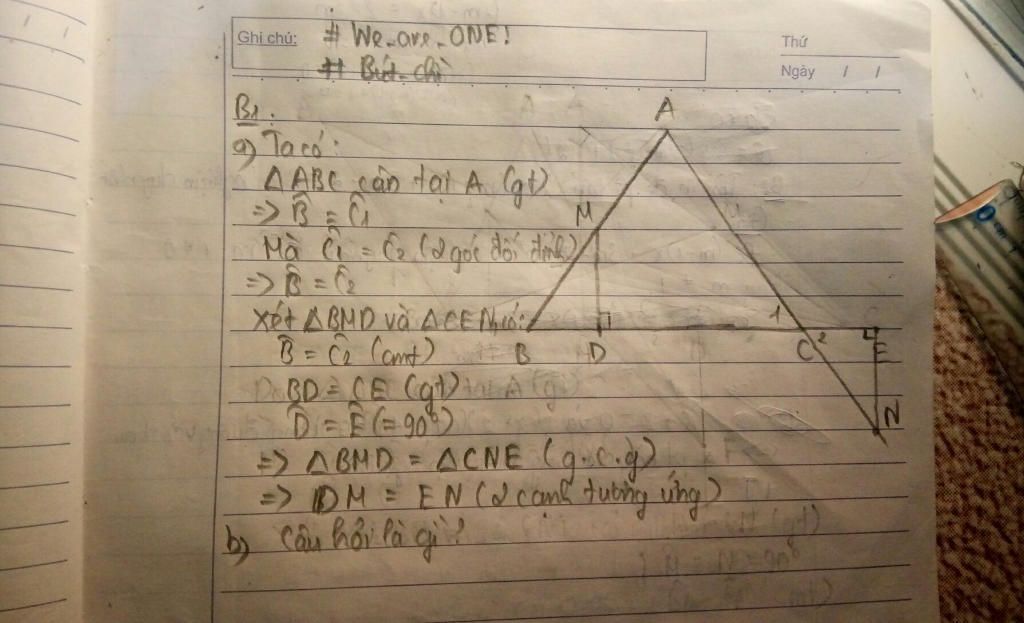 Ghi chú: # We_are_ONE!
# Bút_chì
Thứ
Ngày / /
B1.
a) Ta có:
△ABC cân tại A (gt)
=> B̂ = Ĉ1
Mà Ĉ1 = Ĉ2 (2 góc đối đỉnh)
=> B̂ = Ĉ2
Xét △BMD và △CEN có:
B̂ = Ĉ2 (cmt)
BD = CE (gt)
D̂ = Ê (= 90°)
=> △BMD = △CNE (g.c.g)
=> DM = EN (2 cạnh tương ứng)
b) Câu hỏi là gì?
A
M
1
B D C 2 E
N